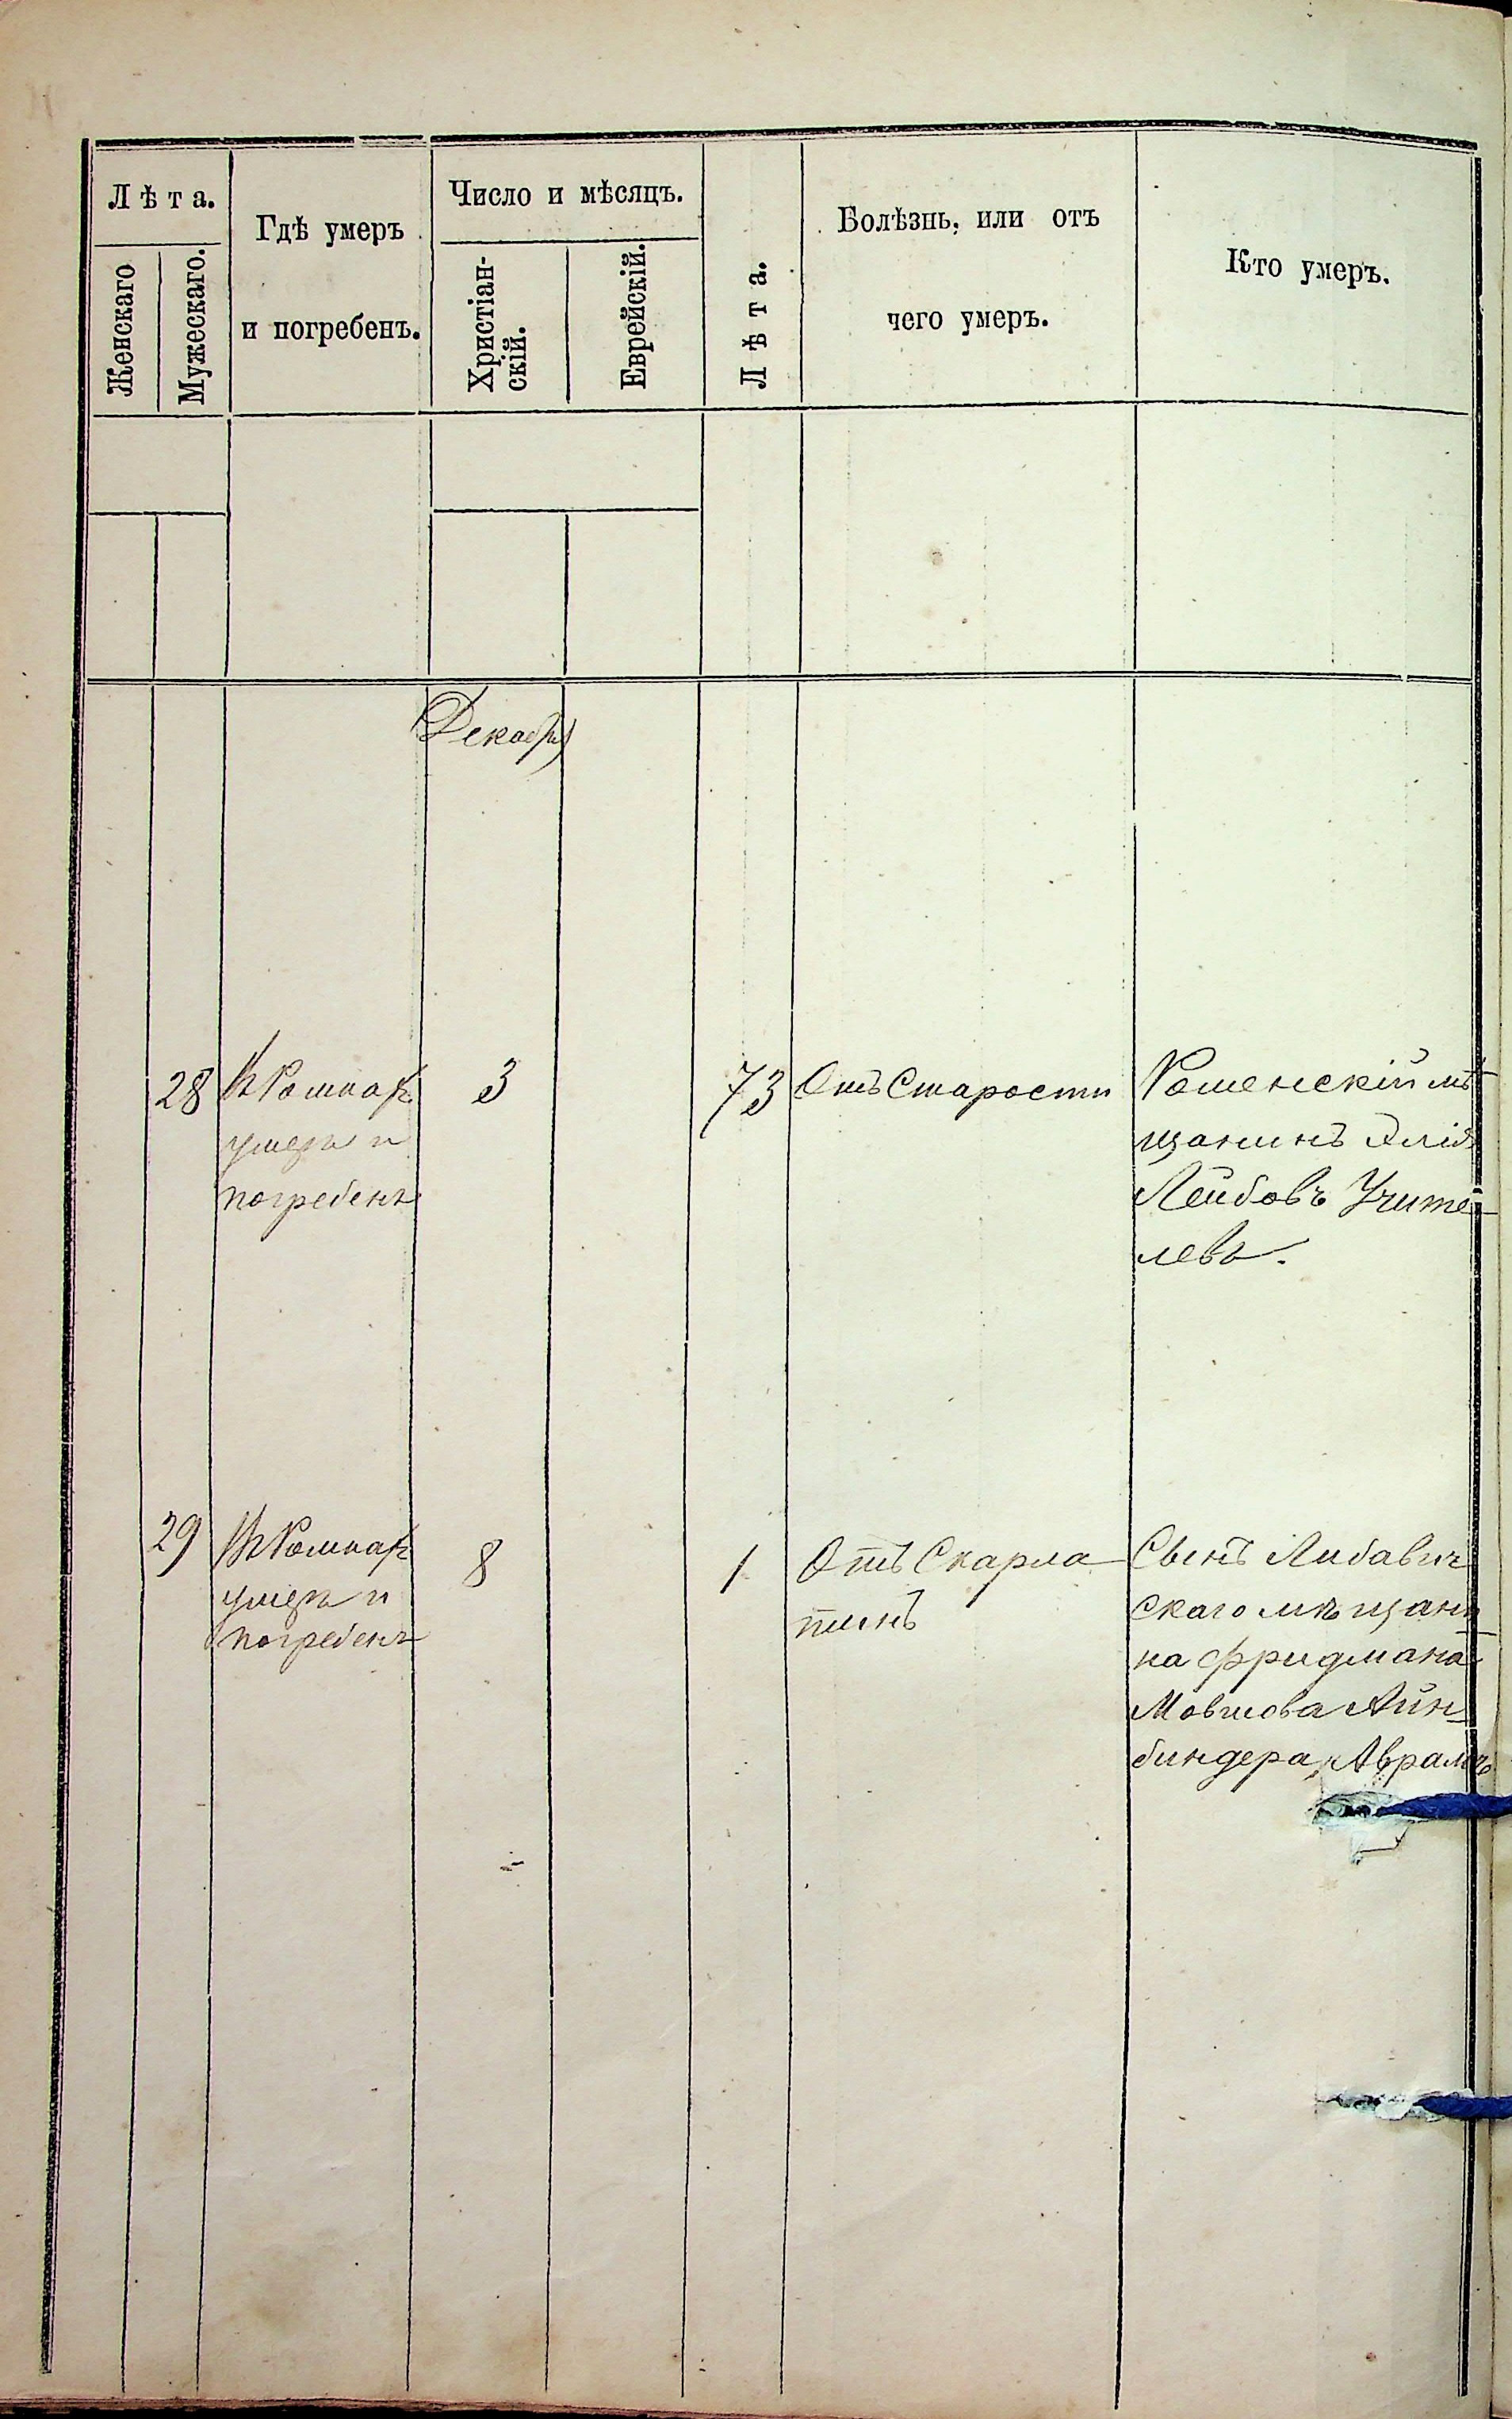 Лѣта.
Гдѣ умеръ
и погребенъ.
Число и мѣсяцъ.
Болѣзнь, или отъ
чего умеръ.
Кто умеръ.
Женскаго
Мужескаго.
Христіан-
скій.
Еврейскій.
Лѣта.
Декабрь
28
въ Ромнахъ
умеръ и
погребенъ
3
73
Отъ Старости
Роменскій мѣ
щанинъ Элія
Лейбовъ Учите-
левъ.
29
Въ Ромнахъ
умеръ и
погребенъ
8
1
Отъ Скарла
тинъ
Сынъ Любавич
скаго мѣщани
на Фридмана
Мовшова Айн-
биндера, Аврамъ